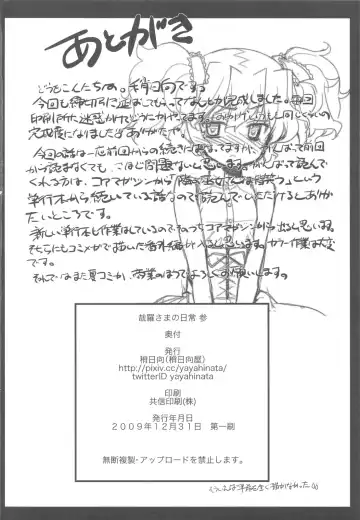 あとがき
どうもこんにちわ。稍日向です。
今回も締切に追われてしまってなんとか完成しました。毎回
印刷所に迷惑かけてどうにかやってます。おかげといっちゃ同じくらいの
完成度になりました。ありがたや。
今回の話は一応前回からの続きにあたりますが、たいして前回
から読まなくてもさほど問題ないと思います。がんばって読んで
くれる方は、コアマガジンから
という
単行本から続いている話なので読んでいただけるとありが
たいところです。
新しい単行本も作業はしているのでそのうちコアマガジンから出ると思います。
そちらにもコミメガで描いた番外編が入ると思います。カラー作業は大変
です。
それではまた夏コミか、商業のほうでよろしくお願いします。
哉羅さまの日常 参
奥付
発行
稍日向(稍日向屋)
http://pixiv.cc/yayahinata/
twitterID yayahinata
印刷
共信印刷(株)
発行年月日
2009年12月31日 第一刷
無断複製・アップロードを禁止します。